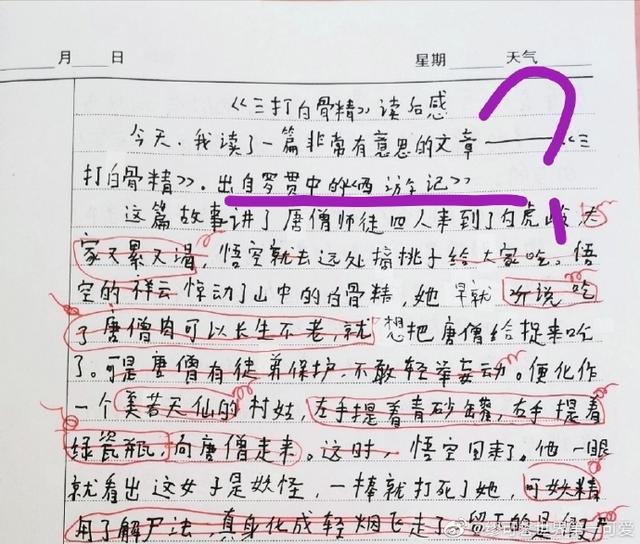 月 日 星期 天气
《三打白骨精》读后感
今天,我读了一篇非常有意思的文章——《三
打白骨精》。出自罗贯中的《西游记》
这篇故事讲了唐僧师徒四人来到了白虎岭大
家又累又渴,悟空就去远处摘桃子给大家吃。悟
空的祥云惊动了山中的白骨精,她早就听说吃
了唐僧肉可以长生不老,就想把唐僧给捉来吃
了。可是唐僧有徒弟保护,不敢轻举妄动。便化作
一个美若天仙的村姑,左手提着青砂罐,右手提着
绿瓷瓶,向唐僧走来。这时,悟空回来了。他一眼
就看出这女子是妖怪,一棒就打死了她,可妖精
用了解尸法,真身化成轻烟飞走了,留下的是假尸